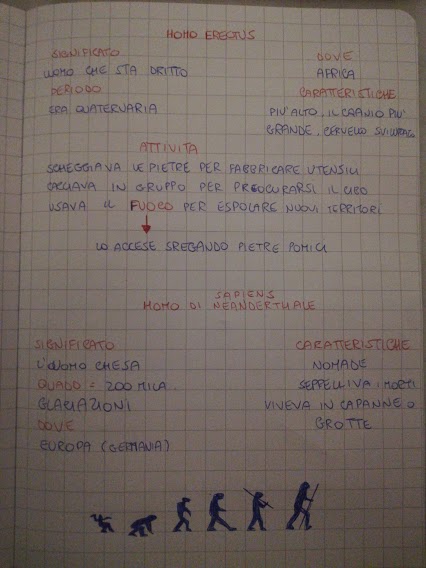 HOMO ERECTUS
SIGNIFICATO
UOMO CHE STA DRITTO
PERIODO
ERA QUATERNARIA
DOVE
AFRICA
CARATTERISTICHE
PIU' ALTO, IL CRANIO PIU'
GRANDE, CERVELLO SVILUPPATO
ATTIVITA
SCHEGGIAVA LE PIETRE PER FABBRICARE UTENSILI
CACCIAVA IN GRUPPO PER PREOCURARSI IL CIBO
USAVA IL FUOCO PER ESPOLARE NUOVI TERRITORI
LO ACCESE SREGANDO PIETRE POMICI
SAPIENS
HOMO DI NEANDERTHALE
SIGNIFICATO
L'UOMO CHE SA
QUADO = 200 MILA
GLACIAZIONI
DOVE
EUROPA (GERMANIA)
CARATTERISTICHE
NOMADE
SEPPELLIVA I MORTI
VIVEVA IN CAPANNE O
GROTTE